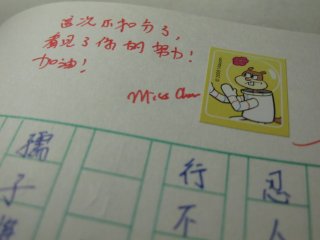 这次不扣分了,
看見了你的努力!
加油!
Miss
忍人
行不
孺子